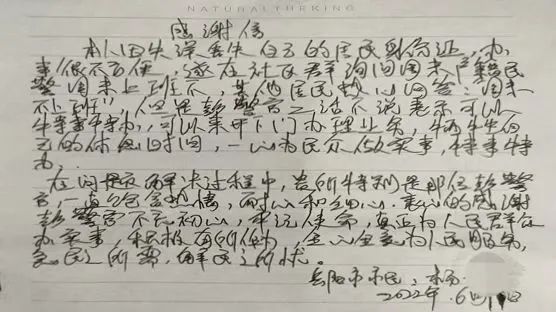 NATURALTHEKING
感谢信
本人因失误丢失自己的居民身份证,办
事很不方便,遂在社区群询问周末户籍民
警周末上班不,其他居民热心回答:周末
不上班",但是彭警官二话不说表示可以
特事特办,可以来所下门办理业务,牺牲自
己的休息时间,一心为民众做实事,特事特
办。
在问题解决过程中,贵所特别是那位彭警
官,一直包含热情,耐心和细心,衷心的感谢
彭警官不忘初心,牢记使命,真正为人民群众
办实事,积极有所作为,全心全意为人民服务,
急民之所需,解民之所忧。
岳阳市市民:杨
2022年.6月